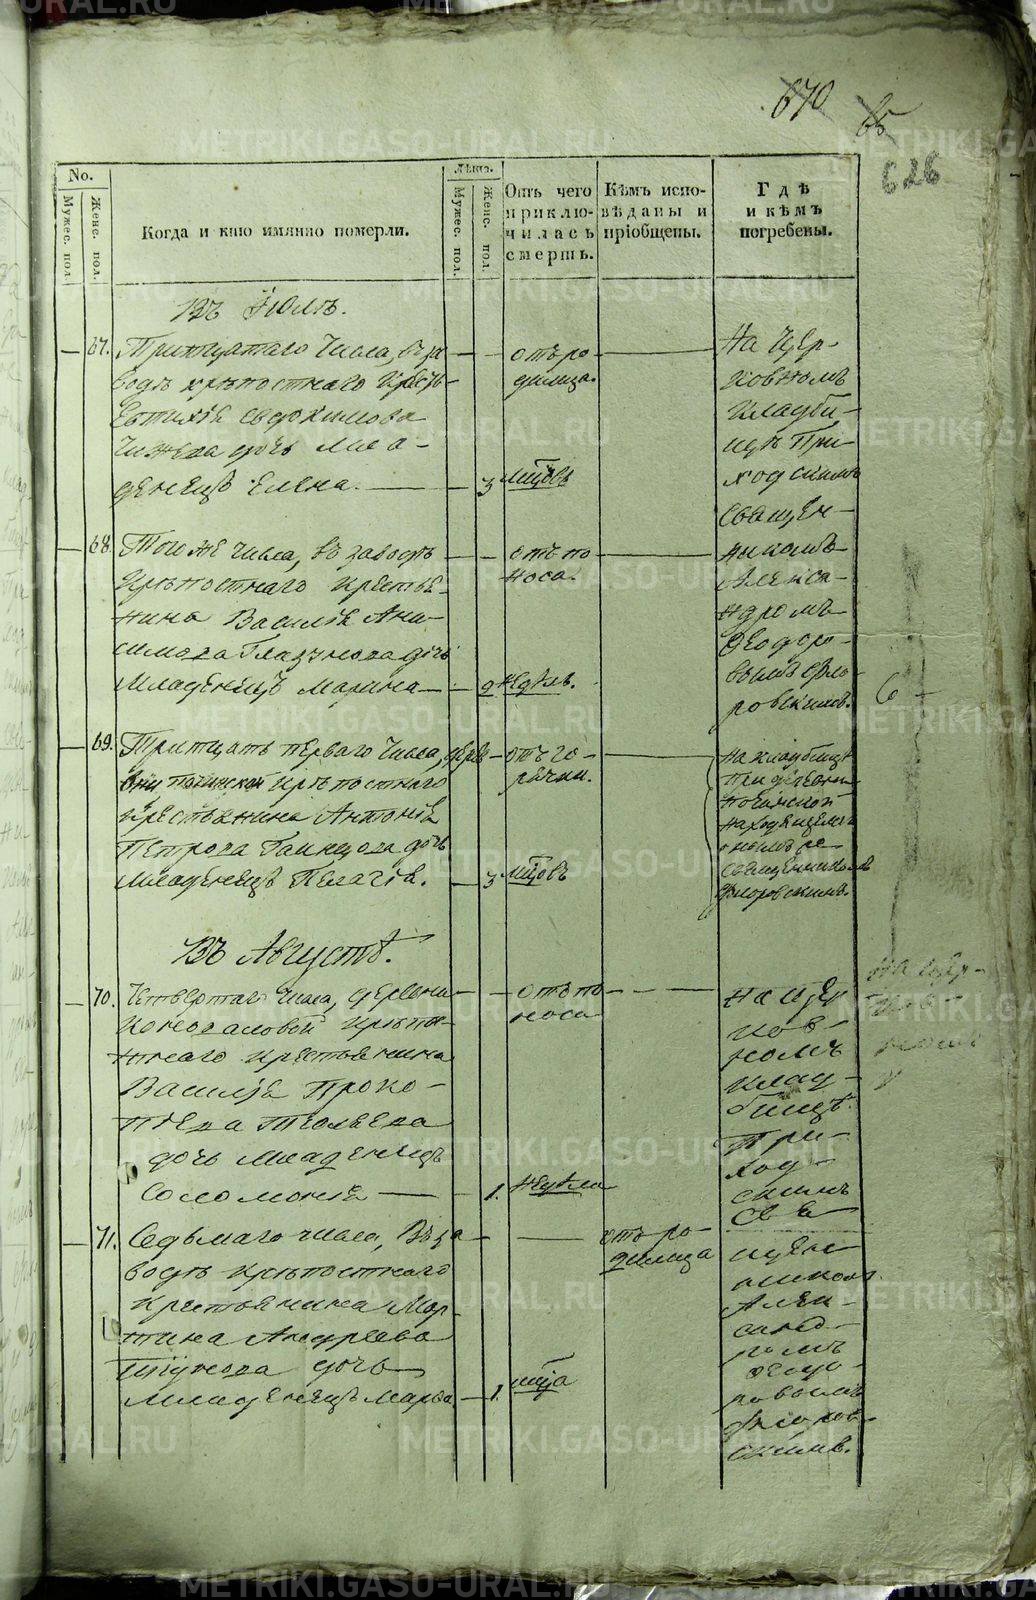 670
65
626
No.
Мужес. пол.
Женс. пол.
Когда и кто имянно померли.
Лѣта.
Мужес. пол.
Женс. пол.
Отъ чего приклю-чилась смерть.
Кѣмъ испо-вѣданы и пріобщены.
Гдѣ и кѣмъ погребены.
Въ Іюлѣ.
67.
Притцатаго числа, въ за
водѣ крѣпостнаго крестья-
Евтихія Евдокимова
Чижева дочь мла-
денецъ Елена.
3
мѣсяцовъ
отъ ро-
димца.
На цер-
ковномъ
кладби-
щѣ При
ходскимъ
Священ-
никомъ
Алекса-
ндромъ
Ѳеодоро-
вымъ Фло-
ровскимъ.
68.
Того же числа, въ заводѣ
крѣпостнаго крестья-
нина Василія Ани-
симова Глазунова дочь
младенецъ Марина
2
недѣль.
отъ по
носа.
6
69.
Тритцать перваго числа, дерев
крѣпостнаго
крестьянина Антонія
Петрова дочь
младенецъ Пелагія.
3
мѣсяцовъ
отъ го-
рячки.
на кладбищѣ
при деревни
находящемся
священникомъ
Флоровскимъ.
Въ Августѣ.
70.
Четвертаго числа, деревни
Коноваловой крѣпо-
стнаго крестьянина
Василія Проко-
пьева
дочь младенецъ
Соломонія
1.
недѣля
отъ по
носа
На цер
ков-
номъ
клад-
бищѣ
При-
ход-
скимъ
Свя
щен-
никомъ
Алек-
санд-
ромъ
Ѳеодо-
ровымъ
Флоров-
скимъ.
на цер-
71.
Седьмаго числа, въ за
водѣ крѣпостнаго
крестьянина Мар-
тина Андреева
дочь
младенецъ Марѳа
1.
мѣсяца
отъ ро-
димца
METRIKI.GASO-URAL.RU